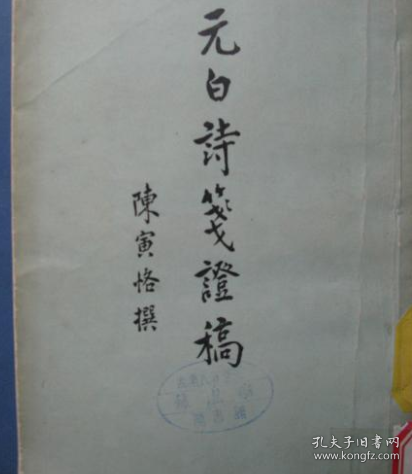 元白詩箋證稿
陳寅恪撰
孔夫子旧书网
www.kongfz.com